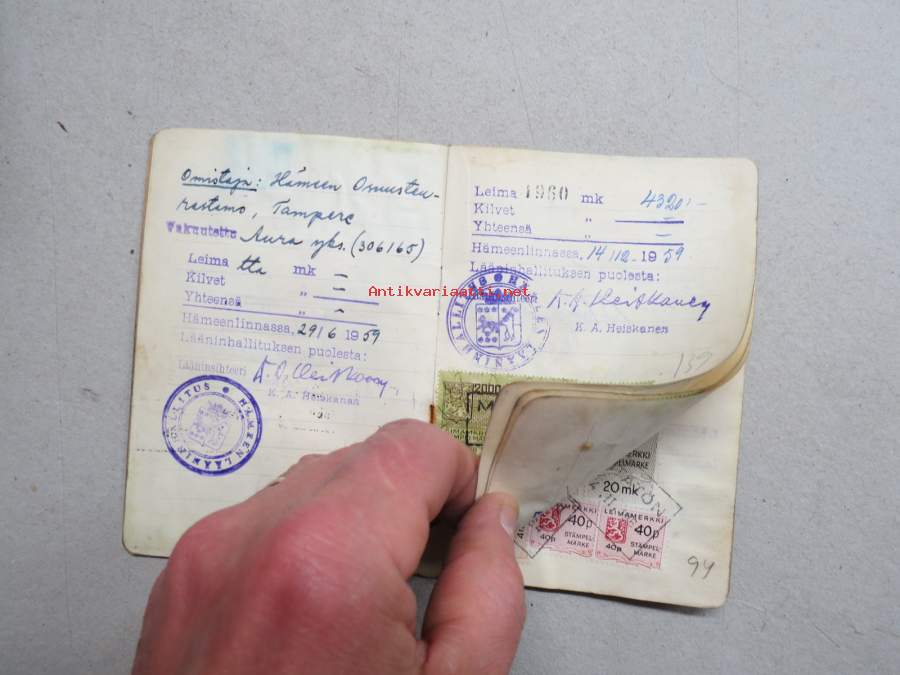 Omistaja: Hämeen Osuusteu-
rastamo, Tampere
Vakuutettu Aura yks. (306165)
Leima tta mk —
Kilvet „ —
Yhteensä „ —
Hämeenlinnassa, 29 16 19 59
Lääninhallituksen puolesta:
Lääninsihteeri K. A. Heiskanen
K. A. Heiskanen
HÄMEEN LÄÄNIN
Leima 1960 mk 4320:-
Kilvet „ —
Yhteensä „ —
Hämeenlinnassa, 14 112 19 59
Lääninhallituksen puolesta:
K. A. Heiskanen
K. A. Heiskanen
Antikvariaatti.net
157
2000
20 mk
LEIMAMERKKI
40p 40p
STÄMPEL-
MARKE
40p 40p
94